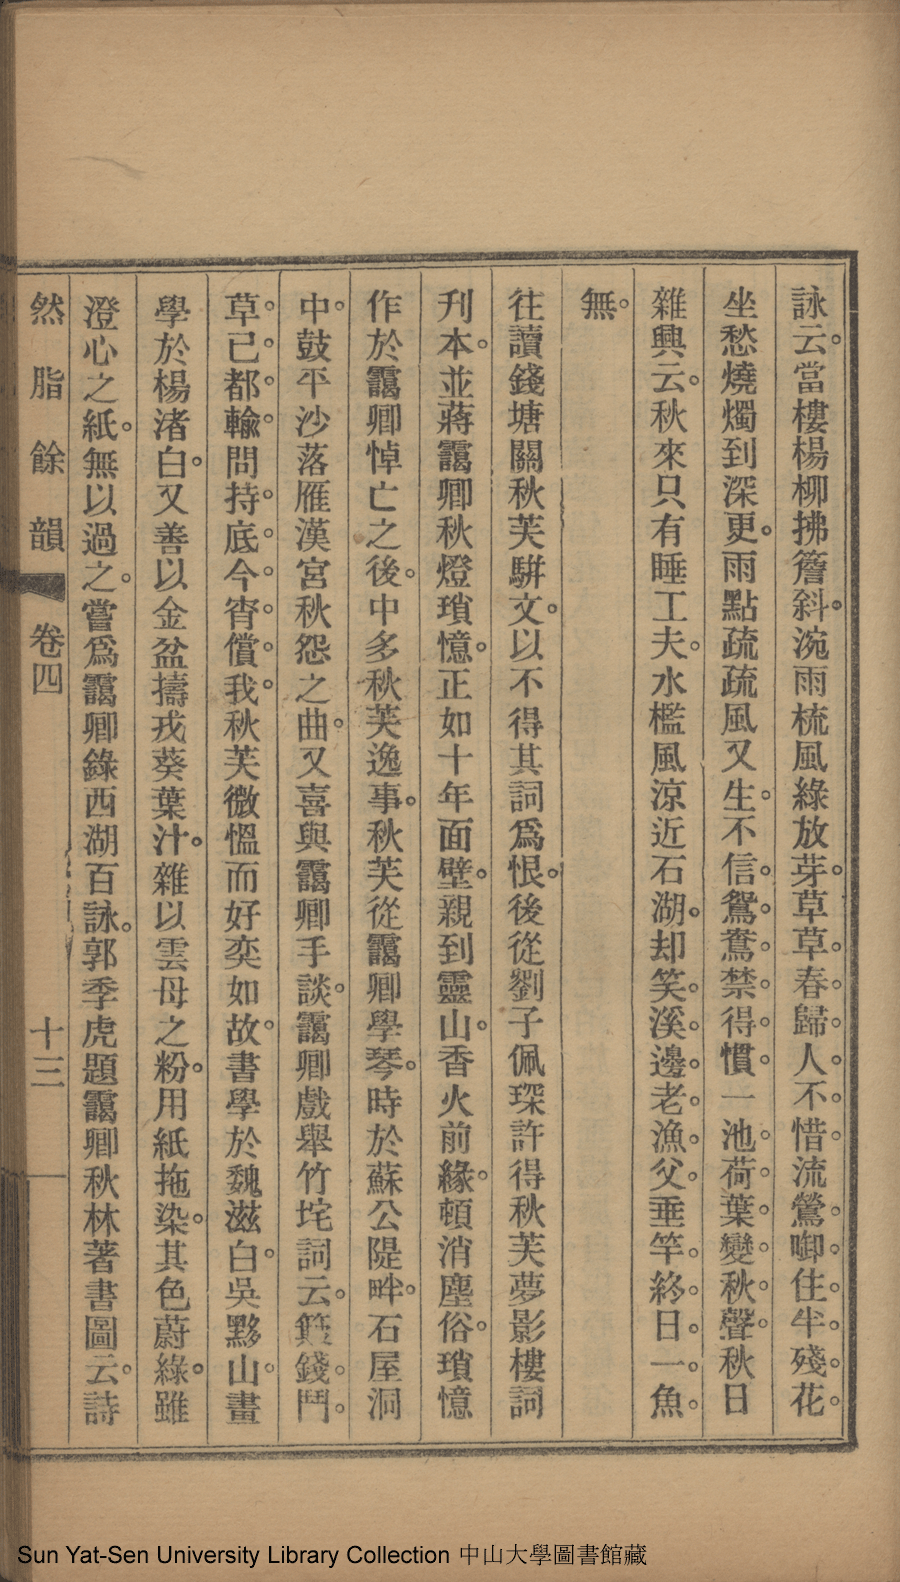 詠云。當樓楊柳拂簷斜。涴雨梳風綠放芽。草草。春。歸。人。不。惜。流鶯。啣。住。半。殘。花。
坐愁燒燭到深更。雨點疏疏風又生。不信。鴛。鴦。禁。得。慣。一池。荷。葉。變。秋。聲。秋日
雜興云。秋來只有睡工夫。水檻風涼近石湖。却笑。溪。邊。老。漁。父。垂竿。終。日。一。魚。
無。
往讀錢塘關秋芙駢文。以不得其詞爲恨。後從劉子佩琛許得秋芙夢影樓詞
刊本。並蔣靄卿秋燈瑣憶。正如十年面壁。親到靈山。香火前緣。頓消塵俗。瑣憶
作於靄卿悼亡之後。中多秋芙逸事。秋芙從靄卿學琴。時於蘇公隄畔。石屋洞
中。鼓平沙落雁漢宮秋怨之曲。又喜與靄卿手談。靄卿戲舉竹垞詞云。簺錢。鬥。
草。已。都。輸。問持。底。今。宵。償。我。秋芙微慍而好奕如故。書學於魏滋白。吳黟山。畫
學於楊渚白。又善以金盆擣戎葵葉汁。雜以雲母之粉。用紙拖染。其色蔚綠。雖
澄心之紙。無以過之。嘗爲靄卿錄西湖百詠。郭季虎題靄卿秋林著書圖云。詩
然脂餘韻 卷四 十三
Sun Yat-Sen University Library Collection 中山大學圖書館藏